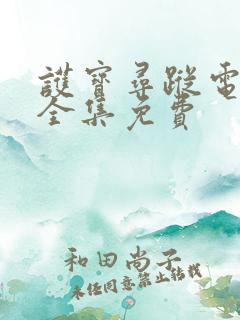 護寶尋蹤電
全集免費
和田尚子
未经同意禁止转载